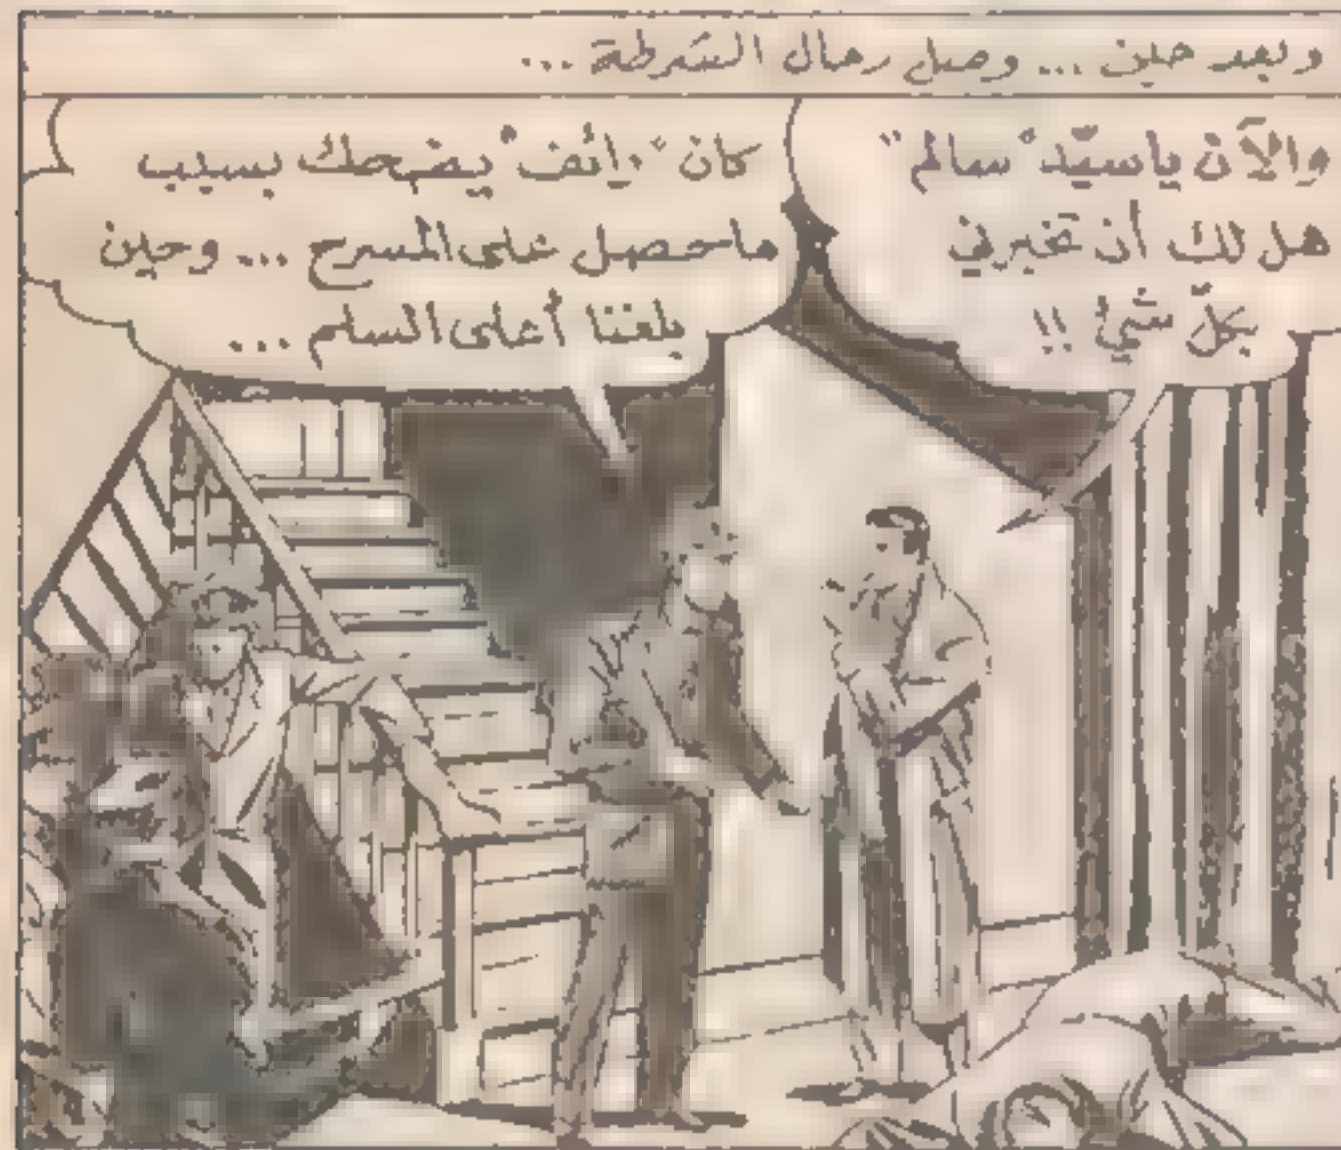 وبعد حين ... وصل رجال الشرطة ...
والآن ياسيّد "سالم"
هل لك أن تخبرني
بكلّ شيء !!
كان "رائف" يضحك بسبب
ماحصل على المسرح ... وحين
بلغنا أعلى السلم ...